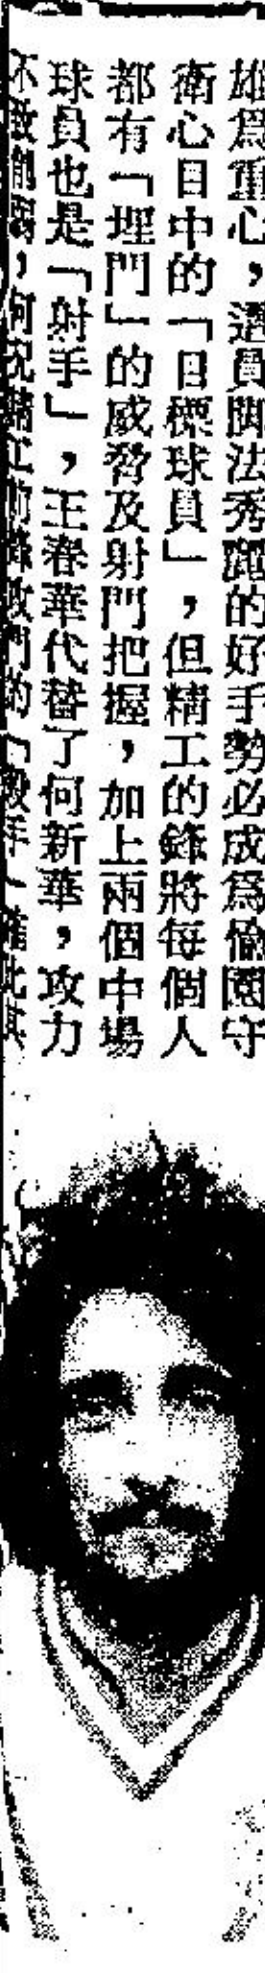 雄爲重心，選員脚法秀麗的好手勢必成爲愉園守
衛心目中的「目標球員」，但精工的鋒將每個人
都有「埋門」的威脅及射門把握，加上兩個中場
球員也是「射手」，王春華代替了何新華，攻力
不敢削弱，何況精工前鋒攻門的「殺手」